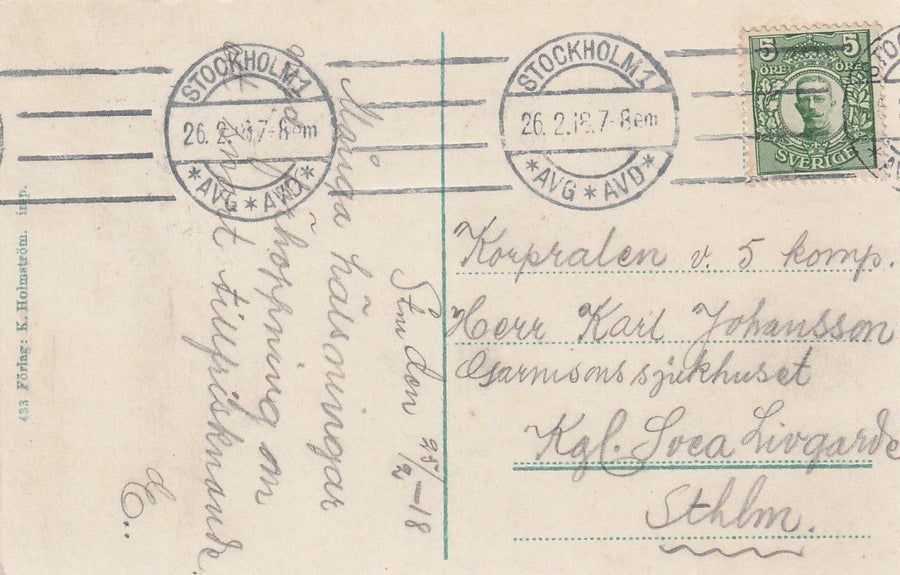 STOCKHOLM 1
26.2.18.7-8em
*AVG*AVD*
STOCKHOLM 1
26.2.18.7-8em
*AVG*AVD*
5 5
ÖRE ÖRE
SVERIGE
Sthm den 25/2-18
Många hälsningar
med förhoppning om
ett snart tillfrisknande.
E..
Korpralen v. 5 komp.
Herr Karl Johansson
Garnisonssjukhuset
Kgl. Svea Livgarde
Sthlm.
433 Förlag: K. Holmström. imp.